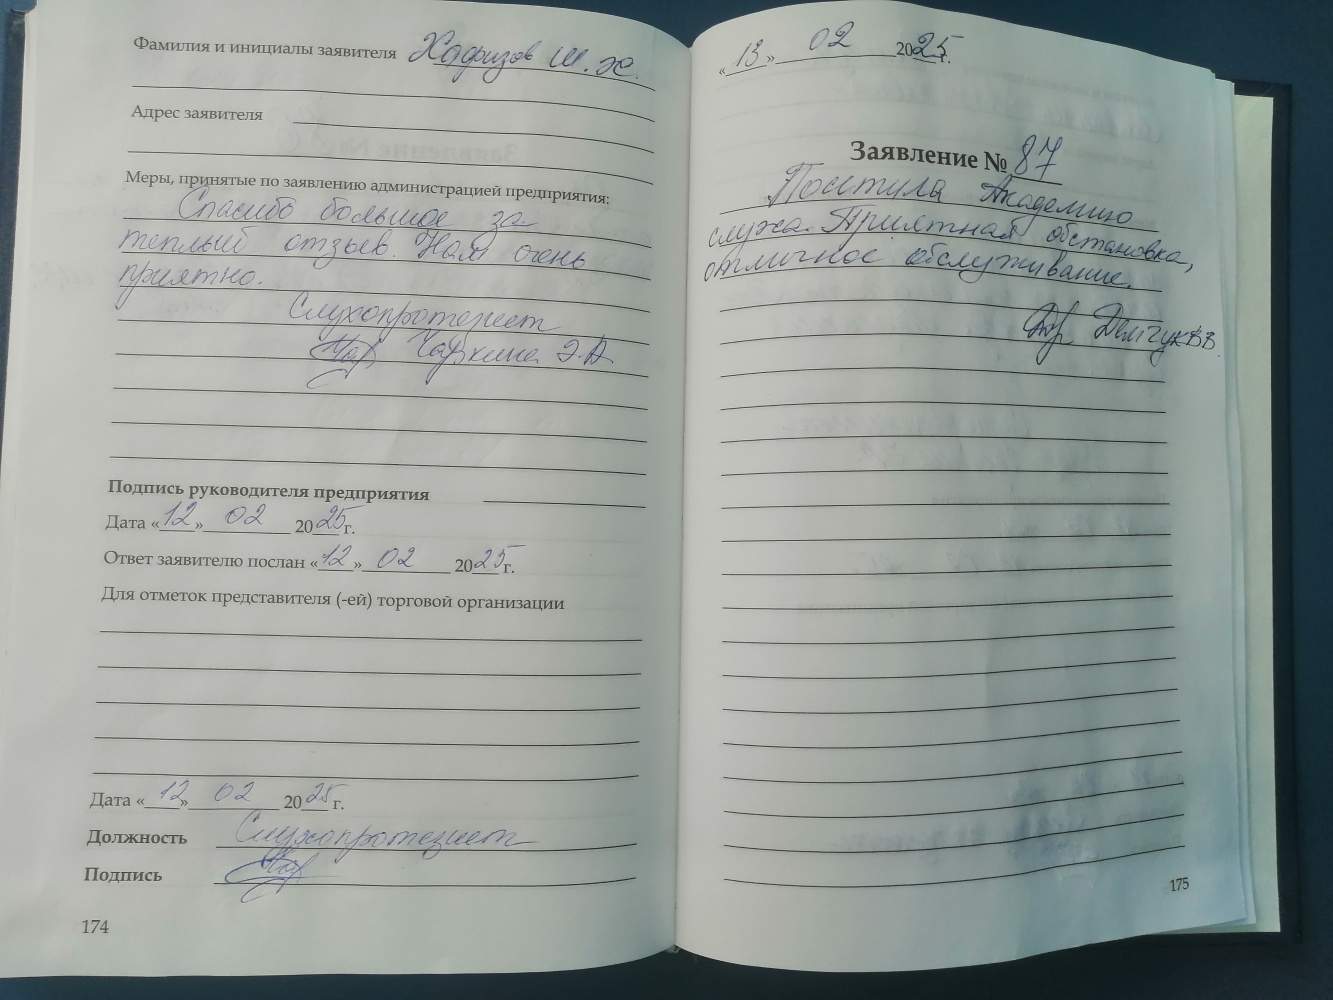 Фамилия и инициалы заявителя Хафизов Ш. Х.
Адрес заявителя
Меры, принятые по заявлению администрацией предприятия:
Спасибо большое за
теплый отзыв. Нам очень
приятно.
Слухопротезист
Чаркина Э.А
Подпись руководителя предприятия
Дата «12» 02 2025 г.
Ответ заявителю послан «12» 02 2025 г.
Для отметок представителя (-ей) торговой организации
Дата «12» 02 2025 г.
Должность Слухопротезист
Подпись
174
«13» 02 2025 г.
Заявление № 87
Посетила Академию
слуха. Приятная обстановка,
отличное обслуживание.
Демчук В В.
175